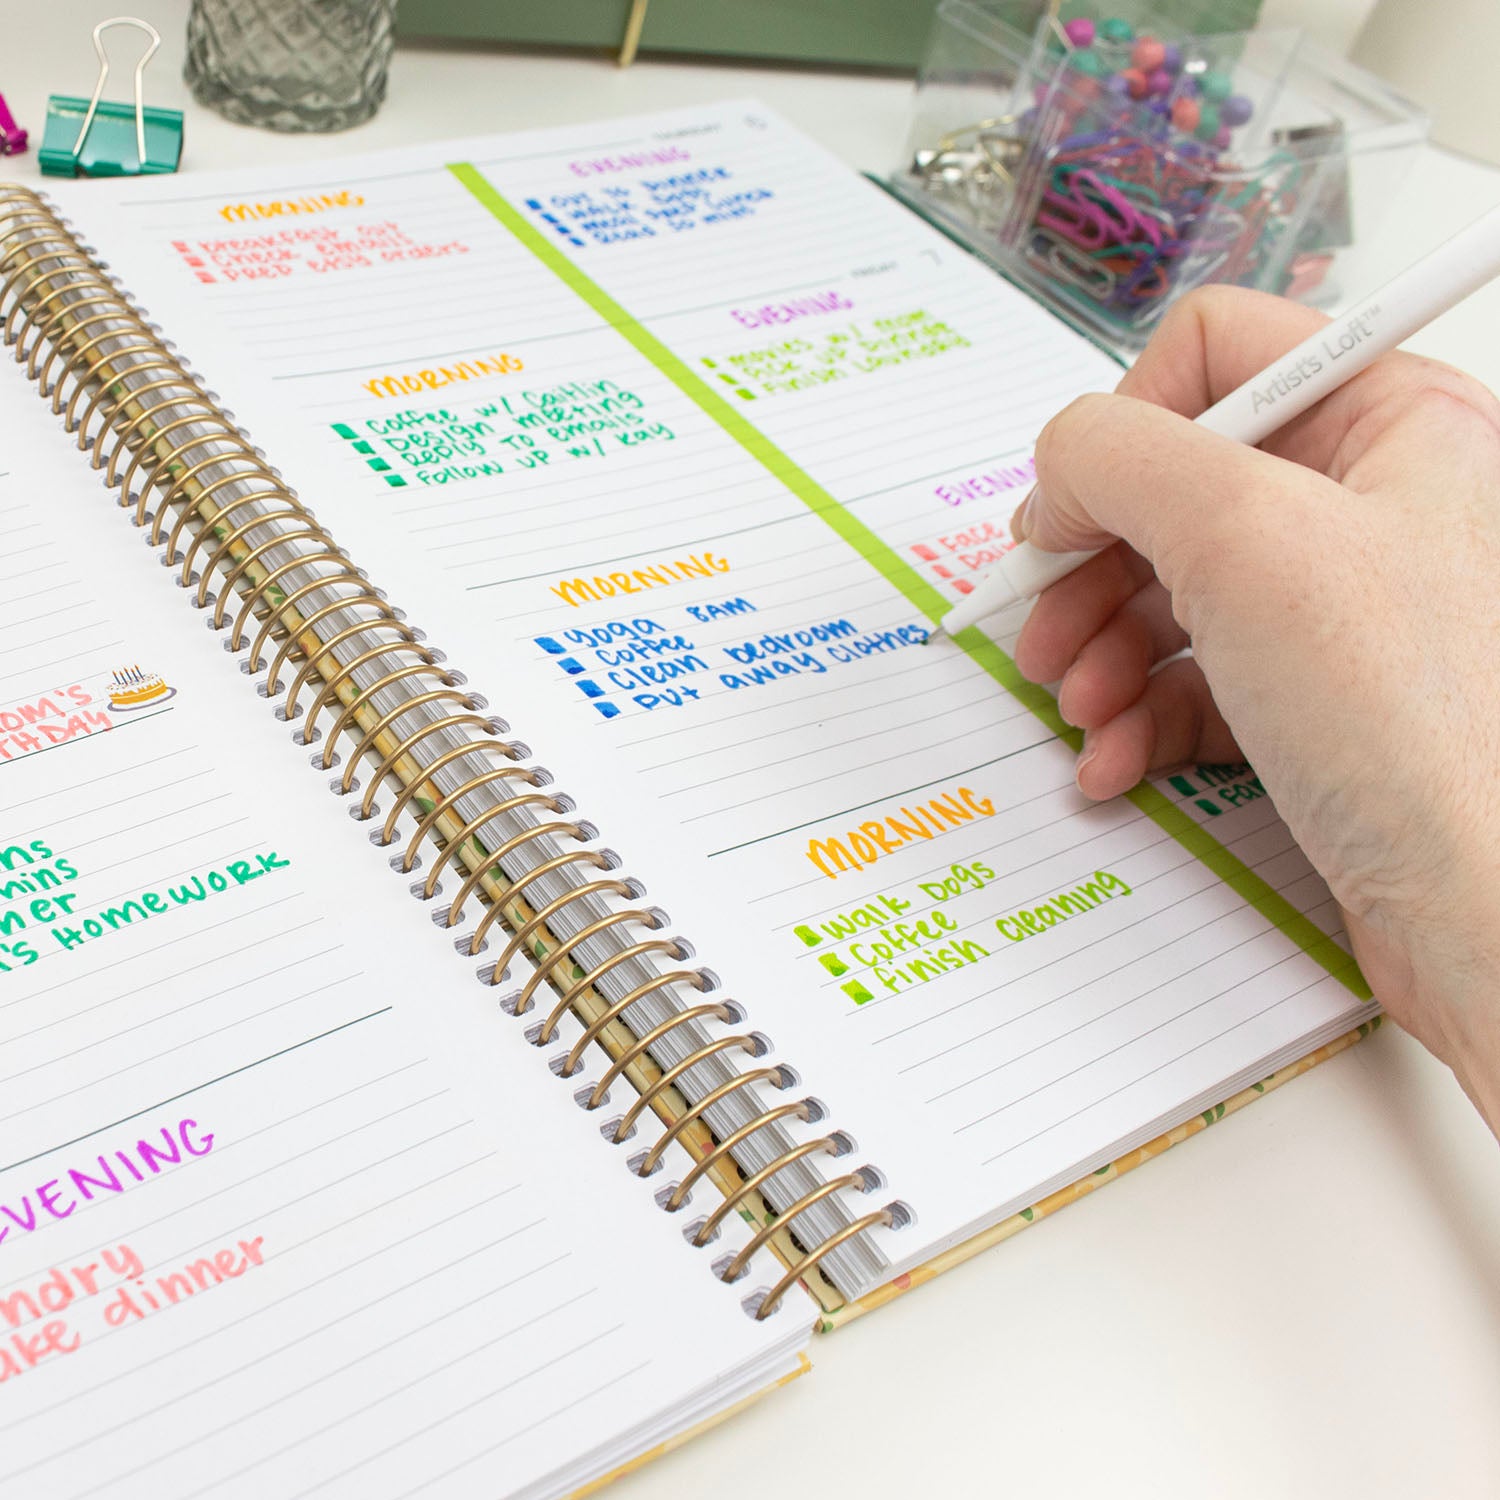 HOMEWORK
EVENING
make dinner
THURSDAY 6
MORNING
breakfast out
Check emails
PREP etsy orders
EVENING
OUT TO DINNER
WALK DOGS
Meal prep lunch
Read 30 mins
FRIDAY 7
MORNING
Coffee w/ Caitlin
Design meeting
Reply to emails
Follow up w/ Kay
EVENING
movies w/ mom
Pick up dinner
Finish Laundry
MORNING
yoga 8AM
Coffee
Clean bedroom
put away clothes
EVENING
Face
MORNING
Walk Dogs
Coffee
finish cleaning
Artist's Loft™